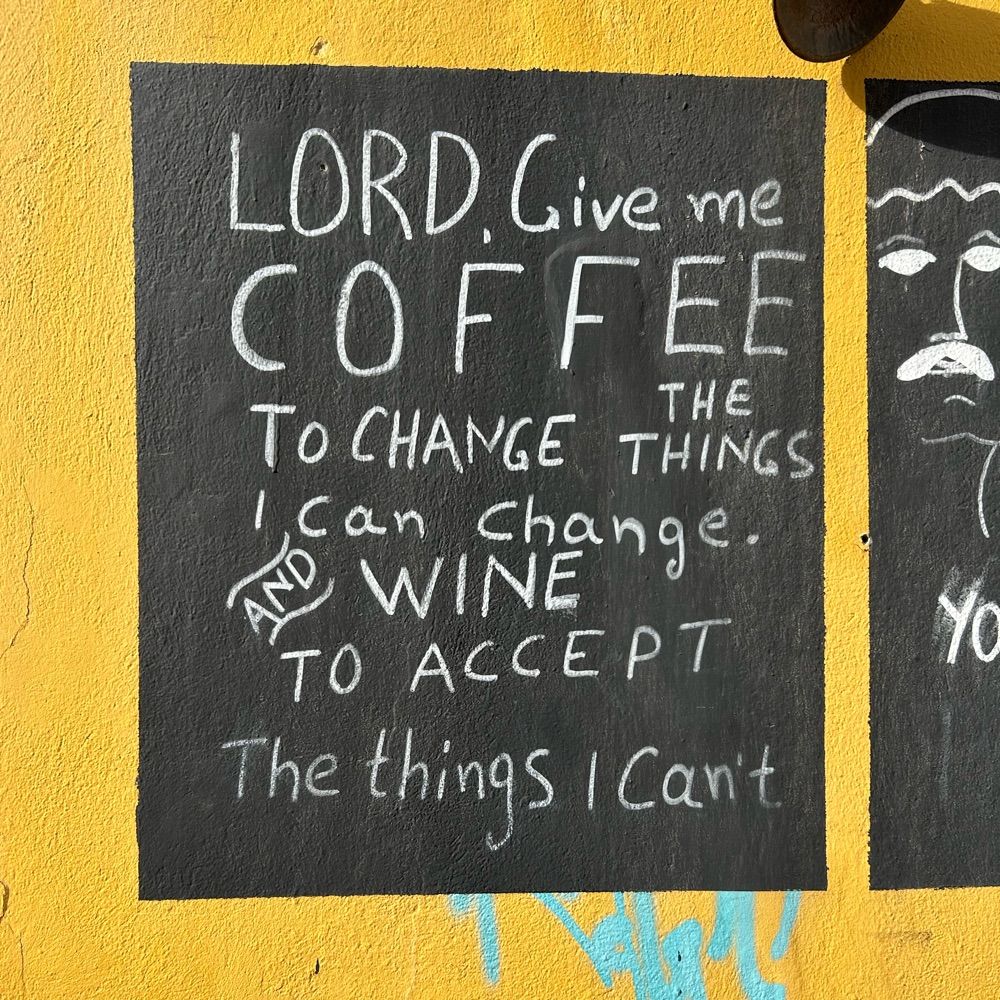 LORD, Give me
COFFEE
TO CHANGE THE THINGS
I can change.
AND WINE
TO ACCEPT
The things I Can't
YO